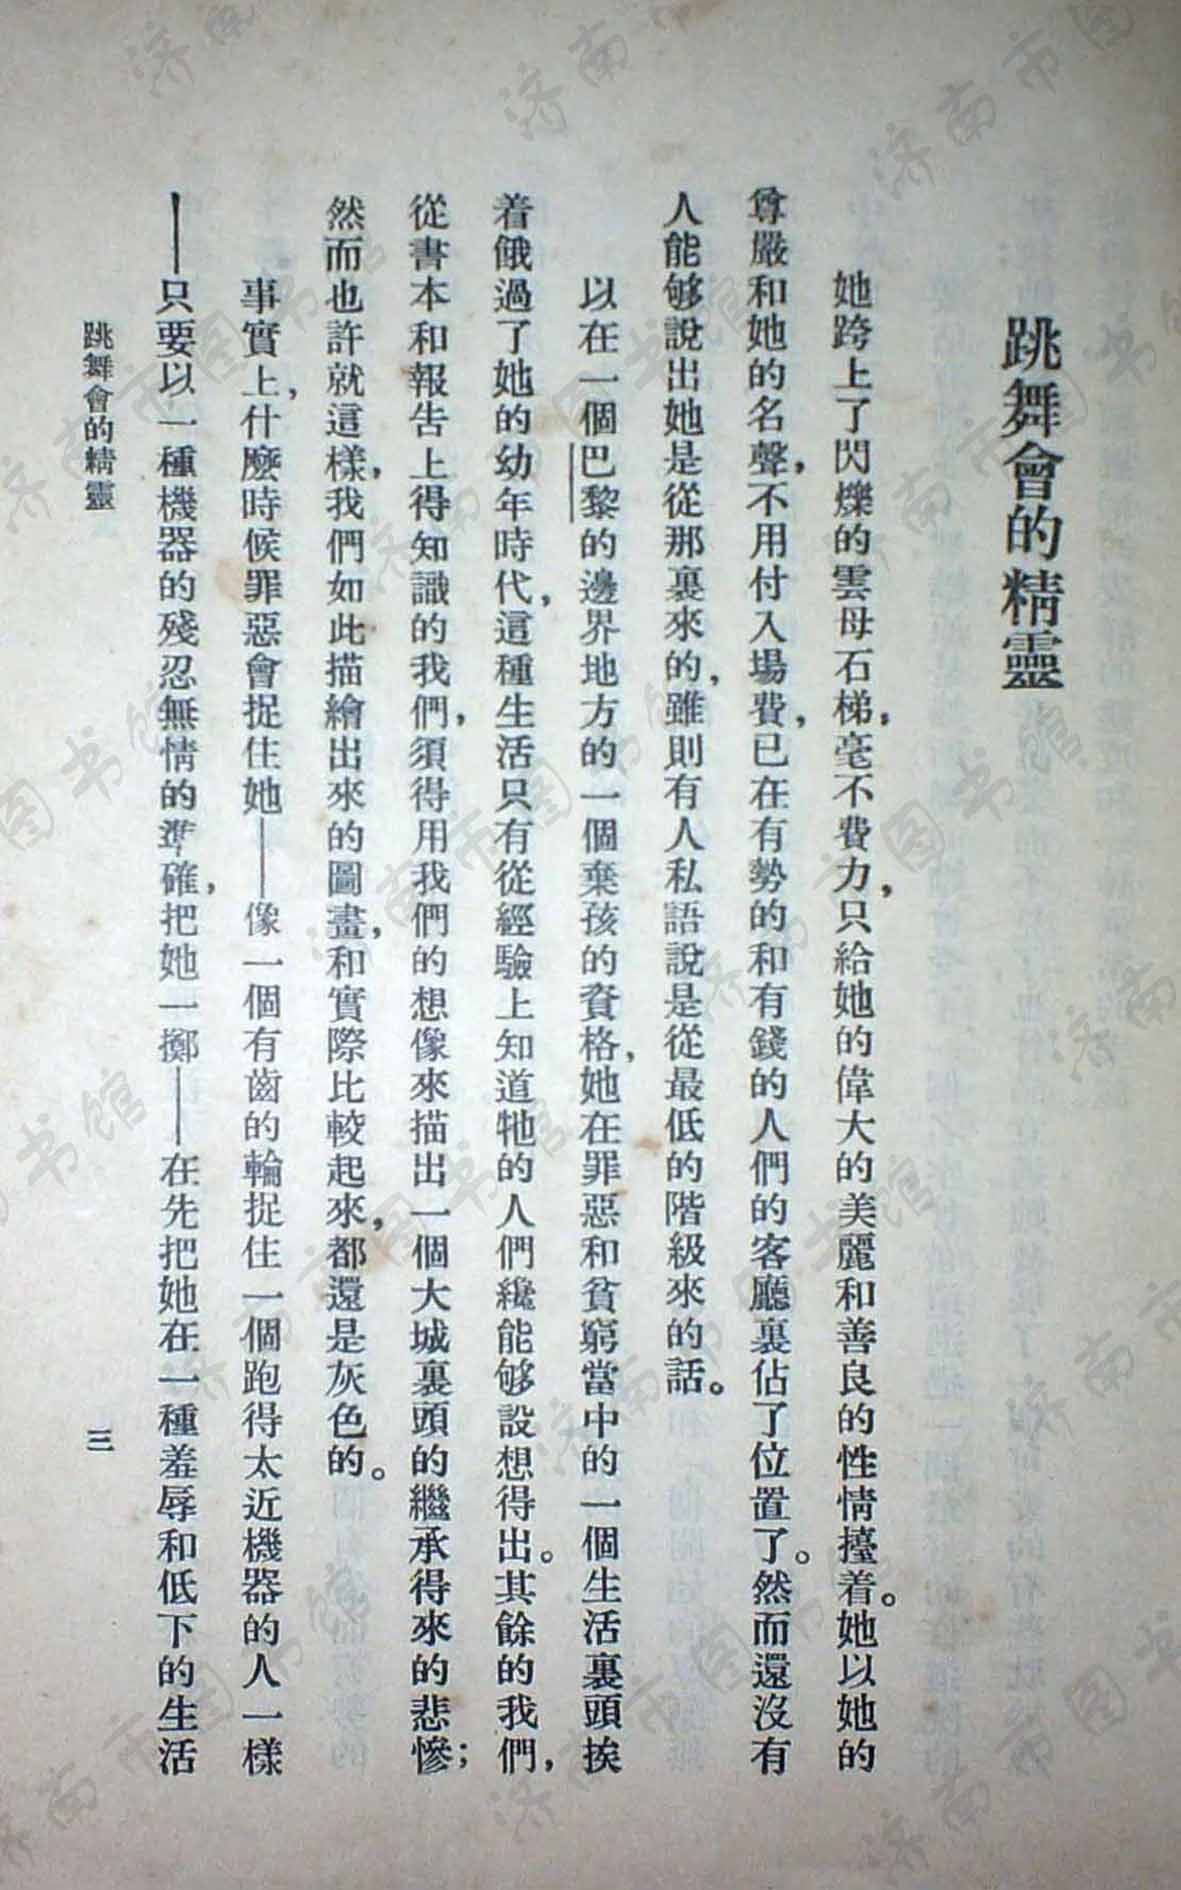 跳舞會的精靈
她跨上了閃爍的雲母石梯，毫不費力，只給她的偉大的美麗和善良的性情擡着。她以她的
尊嚴和她的名聲，不用付入場費，已在有勢的和有錢的人們的客廳裏佔了位置了。然而還沒有
人能够說出她是從那裏來的，雖則有人私語說是從最低的階級來的話。
以在一個巴黎的邊界地方的一個棄孩的資格，她在罪惡和貧窮當中的一個生活裏頭挨
着餓過了她的幼年時代，這種生活只有從經驗上知道牠的人們纔能够設想得出。其餘的我們，
從書本和報告上得知識的我們，須得用我們的想像來描出一個大城裏頭的繼承得來的悲慘；
然而也許就這樣，我們如此描繪出來的圖畫，和實際比較起來，都還是灰色的。
事實上，什麼時候罪惡會捉住她——像一個有齒的輪捉住一個跑得太近機器的人一樣
——只要以一種機器的殘忍無情的準確，把她一擲——在先把她在一種羞辱和低下的生活
跳舞會的精靈
三
济南市图书馆